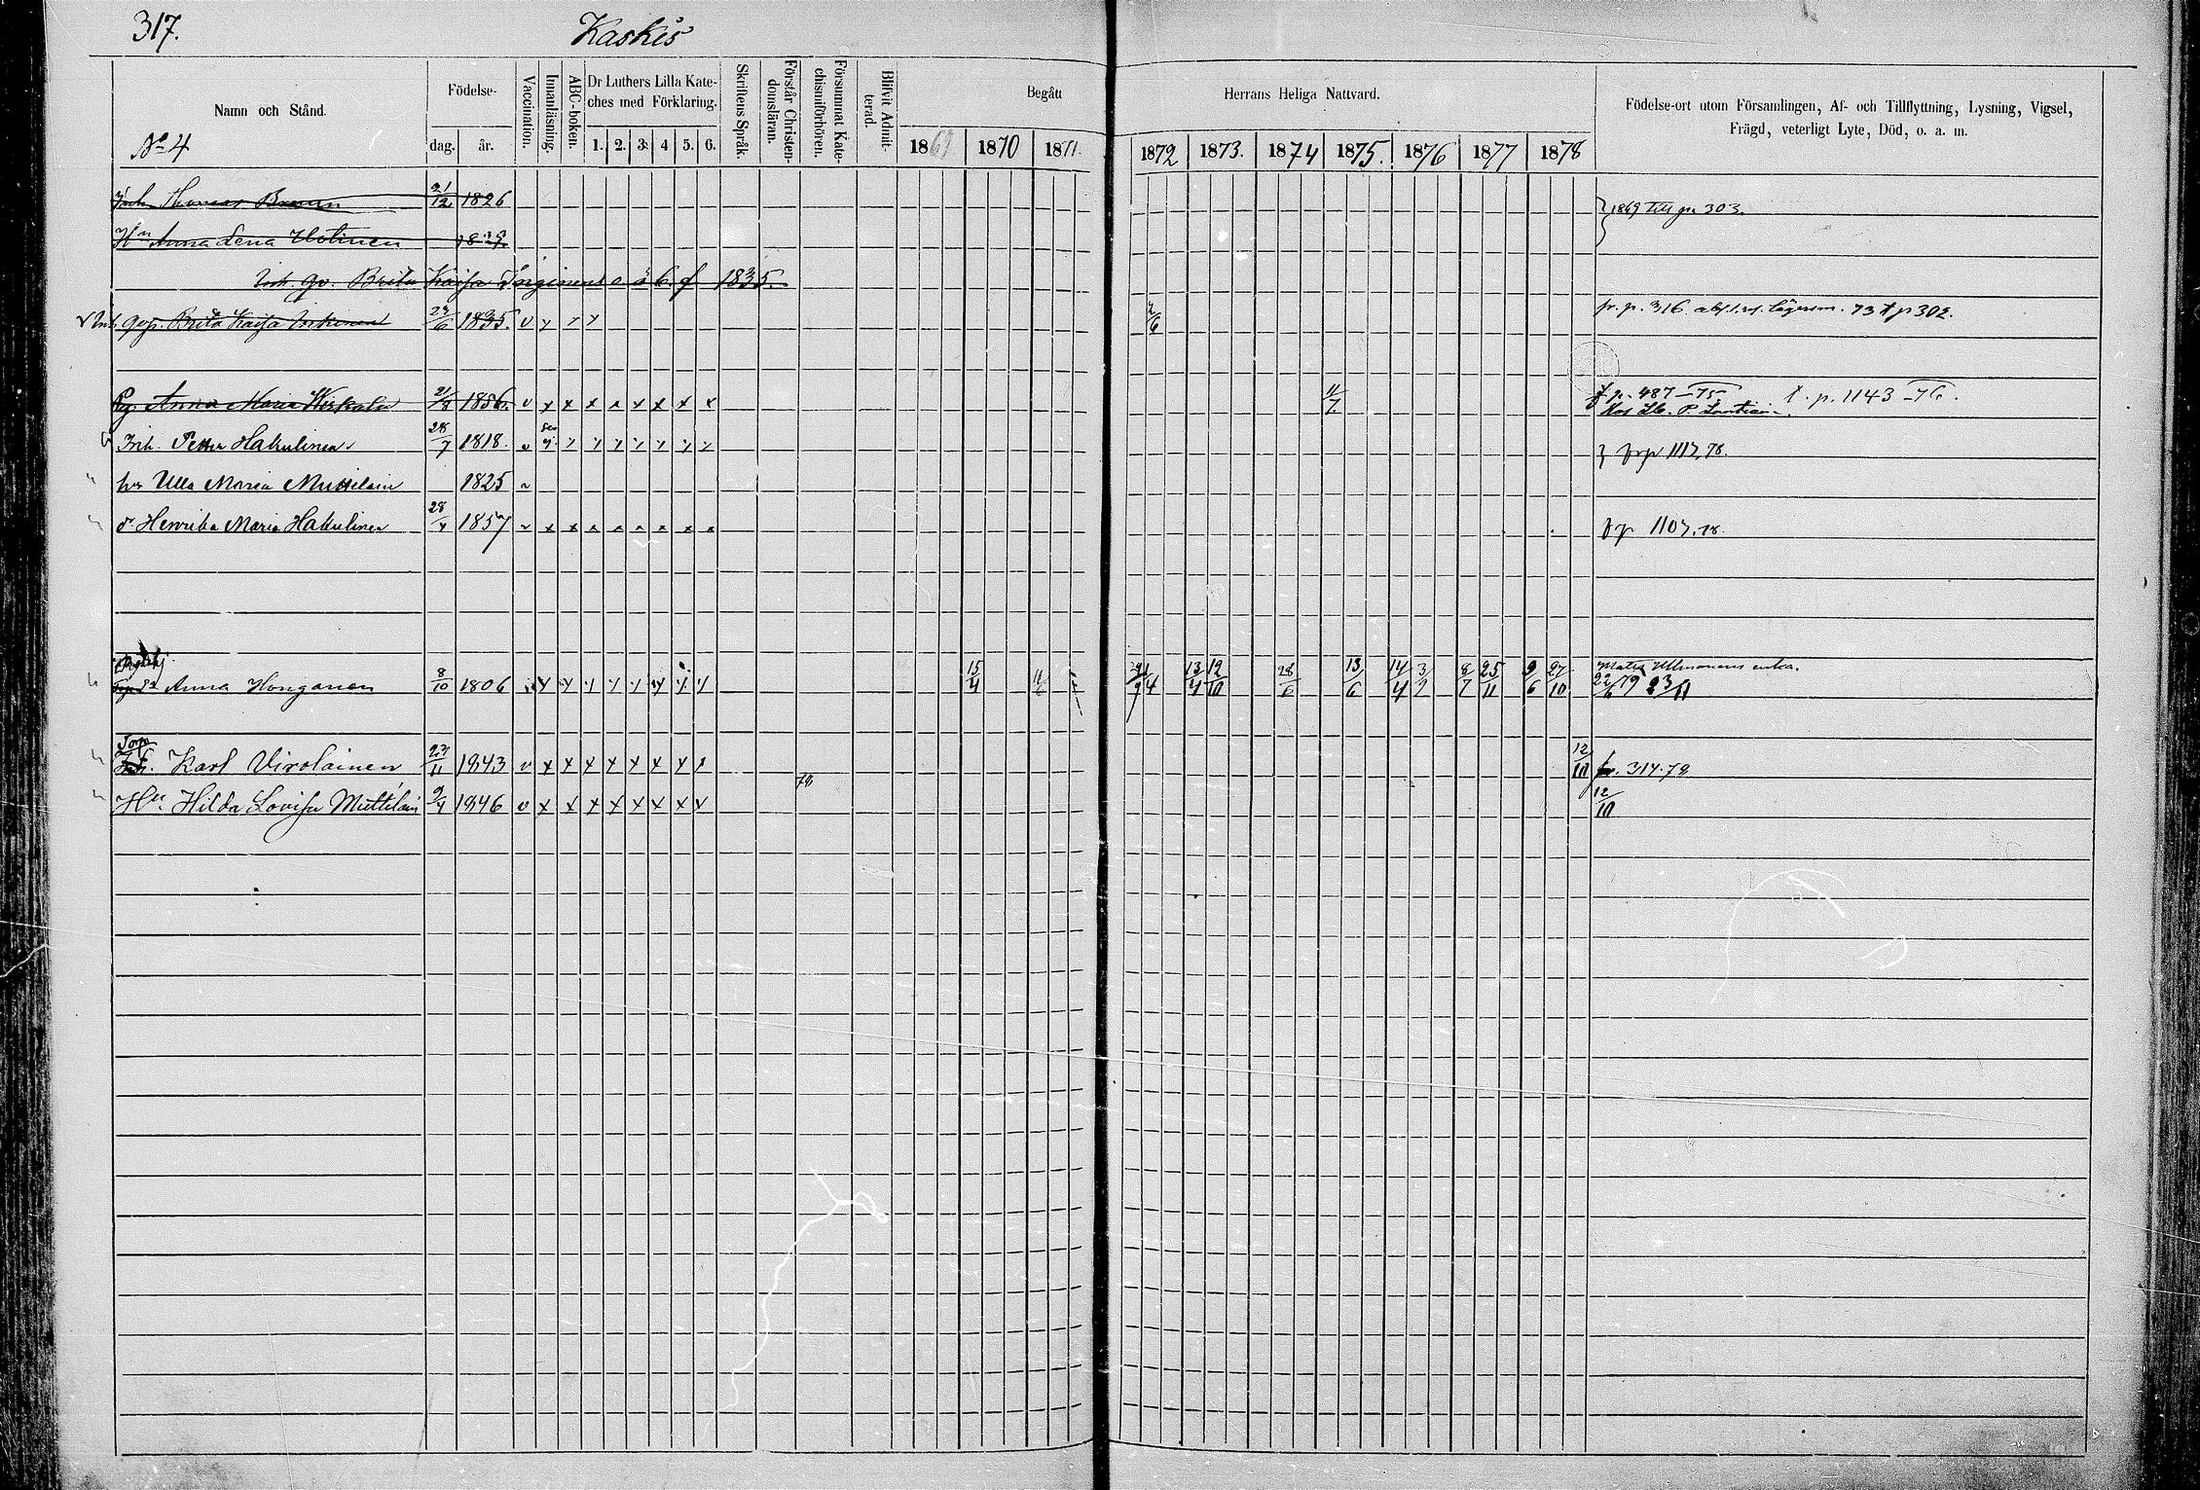 317.
Kaskis
Namn och Stånd.
No 4
Födelse-
dag. år.
Vaccination.
Innanläsning.
ABC-boken.
Dr Luthers Lilla Kate-
ches med Förklaring.
1. 2. 3. 4 5. 6.
Skriftens Språk.
Förstår Christen-
domsläran.
Försummat Kate-
chismiförhören.
Blifvit Admit-
terad.
Begått Herrans Heliga Nattvard.
1869 1870 1871. 1872 1873. 1874 1875. 1876 1877 1878
Födelse-ort utom Församlingen, Af- och Tillflyttning, Lysning, Vigsel,
Frägd, veterligt Lyte, Död, o. a. m.
Inh. Thomas 21/12 1826 1869 till p. 303.
Hu Anna Lena
Inh. gv. Brita Kaisa 1835.
Inh. Brita Kaisa 23/6 1835. v 2/6 fr. p. 316 73 p 302.
Anna Maria 21/8 1856. v x x x x x x x x 11/7 p. 487 - 75. t. p. 1143 - 76.
Inh. Petter Hakulinen 28/7 1818. p 1117, 78.
hu Ulla Maria Muttilain 1825
d. Henrika Maria Hakulinen 28/4 1857 p 1107, 78.
Anna Honganen 8/10 1806 15/4 11/6 13/4 12/10 28/6 13/6 14/4 3/7 8/7 25/11 9/6 27/10 Matts Ullmanens enka.
22/6 79 23/11
Torp
Inh. Karl Virolainen 23/11 1843 v x x x x x x x x 12/10 fr. 314.78
78
Hu. Hilda Lovisa Muttilain 9/4 1846 v x x x x x x x x 12/10